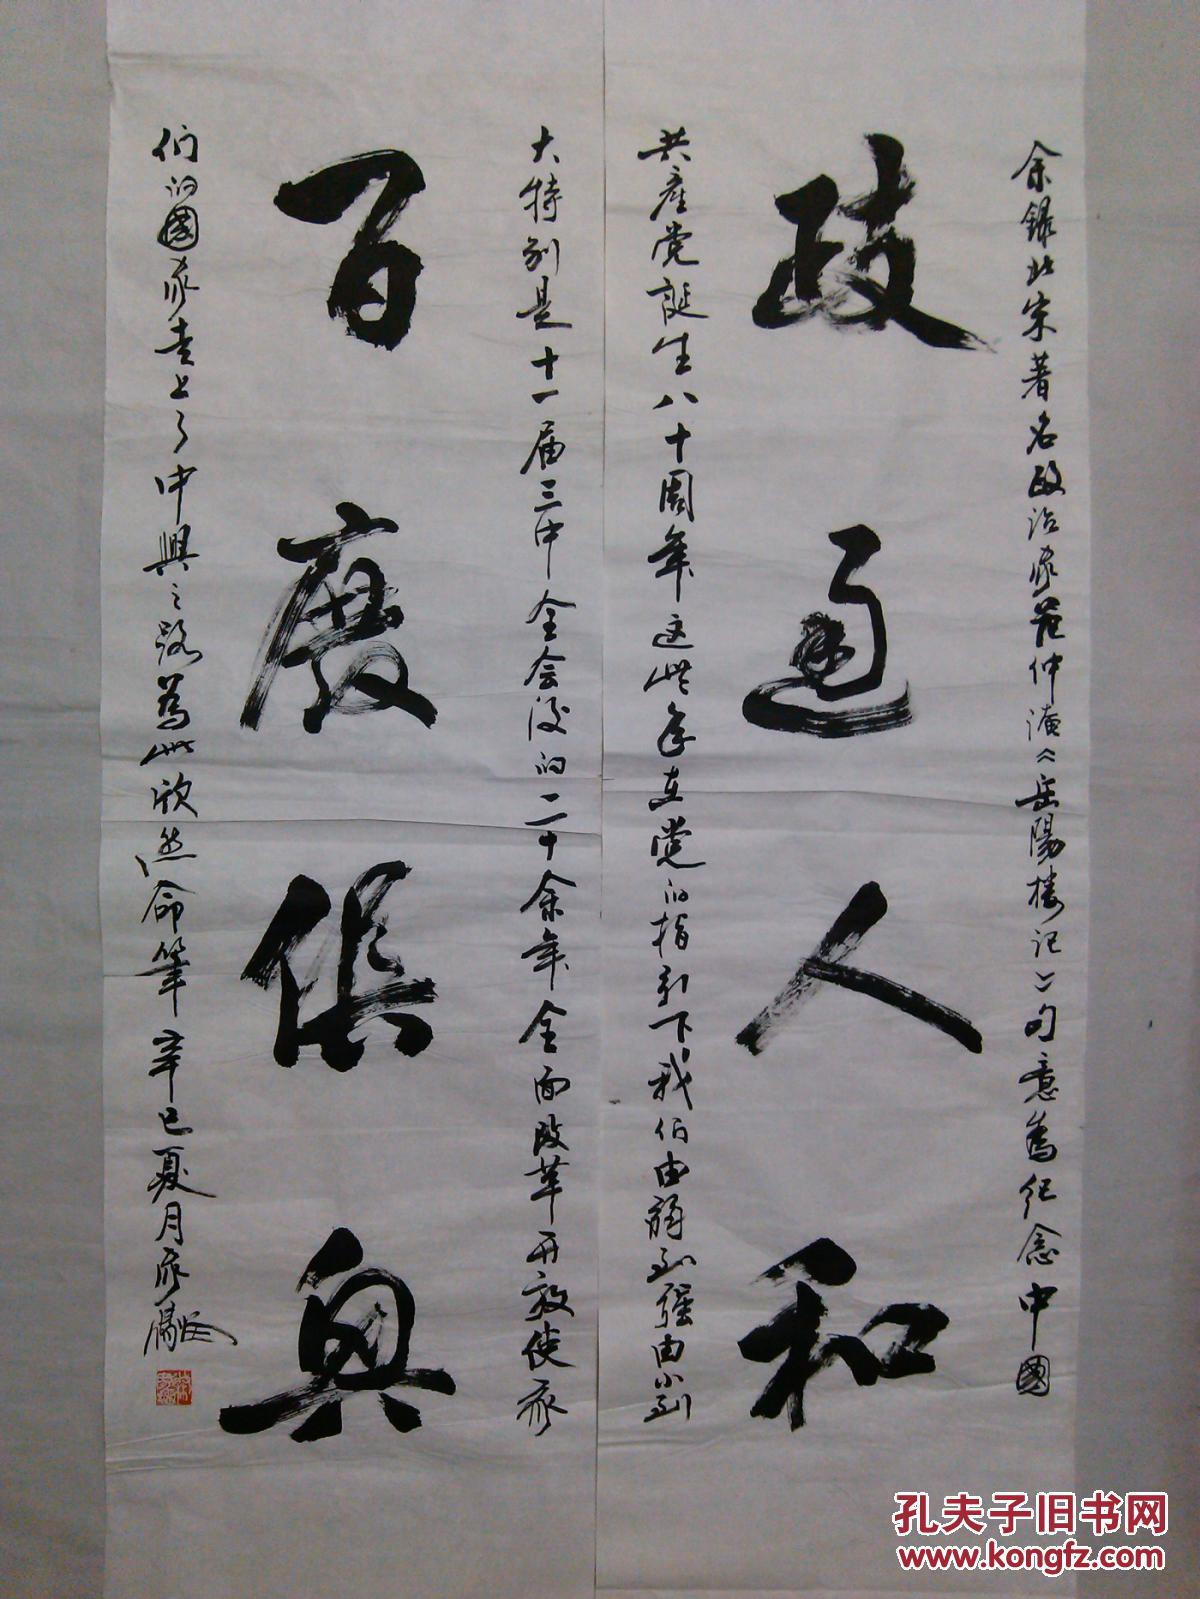 余録北宋著名政治家范仲淹《岳陽楼记》句意為纪念中國
政通人和
共産党誕生八十周年这些年在党的指引下我们由弱到强由小到
大特别是十一届三中全会後的二十余年全面改革开放使我
百廢俱興
们的國家走上了中興之路為此欣然命筆辛巳夏月
孔夫子旧书网
www.kongfz.com